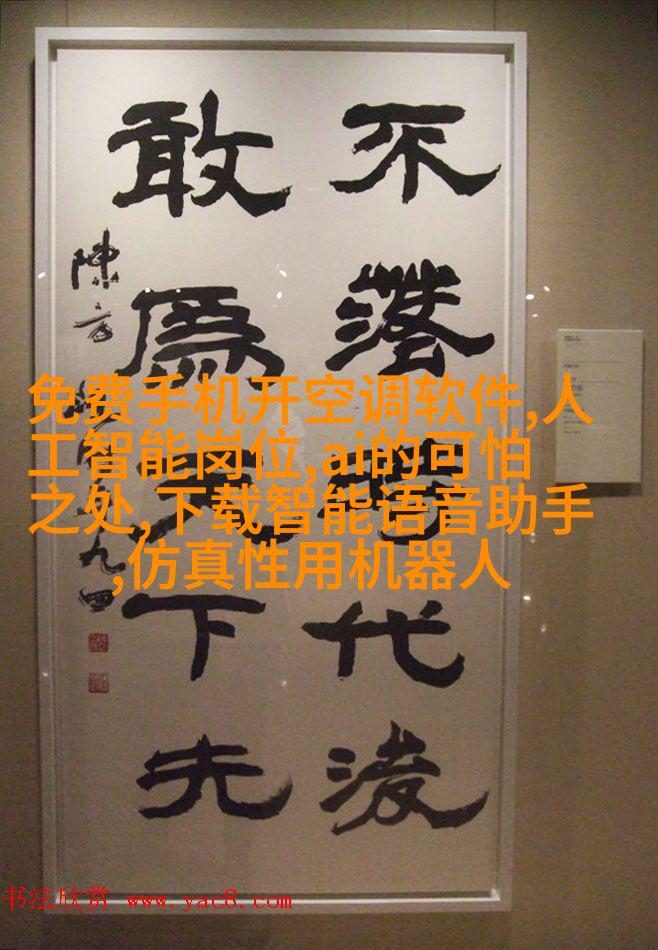 不落時代後
敢爲天下先
免费手机开空调软件,人
工智能岗位,ai的可怕
之处,下载智能语音助手
,仿真性用机器人
书法欣赏 www.yac8.com